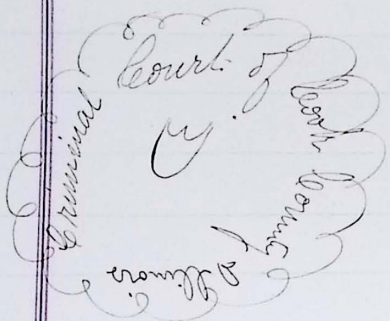 Criminal Court of Cook County
Illinois